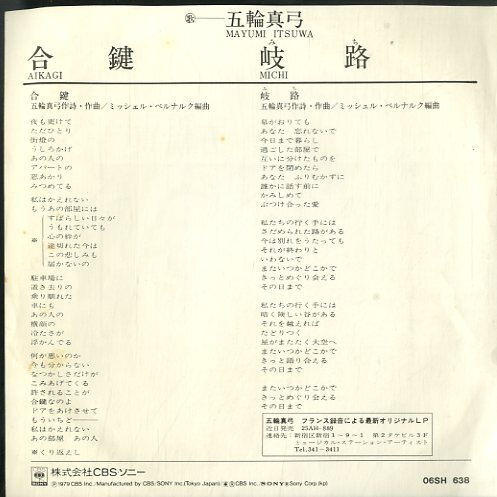 歌 五輪真弓
MAYUMI ITSUWA
合鍵
AIKAGI
岐路
みち
MICHI
合鍵
五輪真弓作詩・作曲／ミッシェル・ベルナルク編曲
夜も更けて
ただひとり
街燈の
うしろかげ
あの人の
アパートの
窓あかり
みつめてる
私はかえれない
もうあの部屋には
※
すばらしい日々が
うもれていても
心の絆が
途切れた今は
この悲しみも
届かないの
駐車場に
置き去りの
乗り馴れた
車にも
あの人の
横顔の
冷たさが
浮かんでる
何が悪いのか
今も分からない
なつかしさだけが
こみあげてくる
許されることが
合鍵なのよ
ドアをあけさせて
もういちど──
私はかえれない
あの部屋 あの人
※くり返えし
岐路
五輪真弓作詩・作曲／ミッシェル・ベルナルク編曲
幕がおりても
あなた 忘れないで
今日まで暮らし
過ごした部屋で
互いに分けたものを
ドアを閉めたら
あなた ふりむかずに
誰かに話す前に
かみしめて
ぶつけ合った愛
私たちの行く手には
さだめられた路がある
今は別れをうたっても
それが終わりと
いわないで
またいつかどこかで
きっとめぐり会える
その日まで
私たちの行く手には
暗く険しい谷がある
それを越えれば
たどりつく
星がまたたく大空へ
またいつかどこかで
きっと語り会える
その日まで
またいつかどこかで
きっとめぐり会える
その日まで
五輪真弓 フランス録音による最新オリジナルLP
近日発売 25AH-849
連絡先：新宿区新宿1−9−1 第2タケビル3F
ミュージカル・ステーション・アーティスト
Tel.341−3411
CBS SONY 株式会社CBSソニー
06SH 638
Ⓟ1979 CBS Inc./Manufactured by CBS/SONY Inc.(Tokyo Japan)
CBS Inc. SONY Sony Corp.